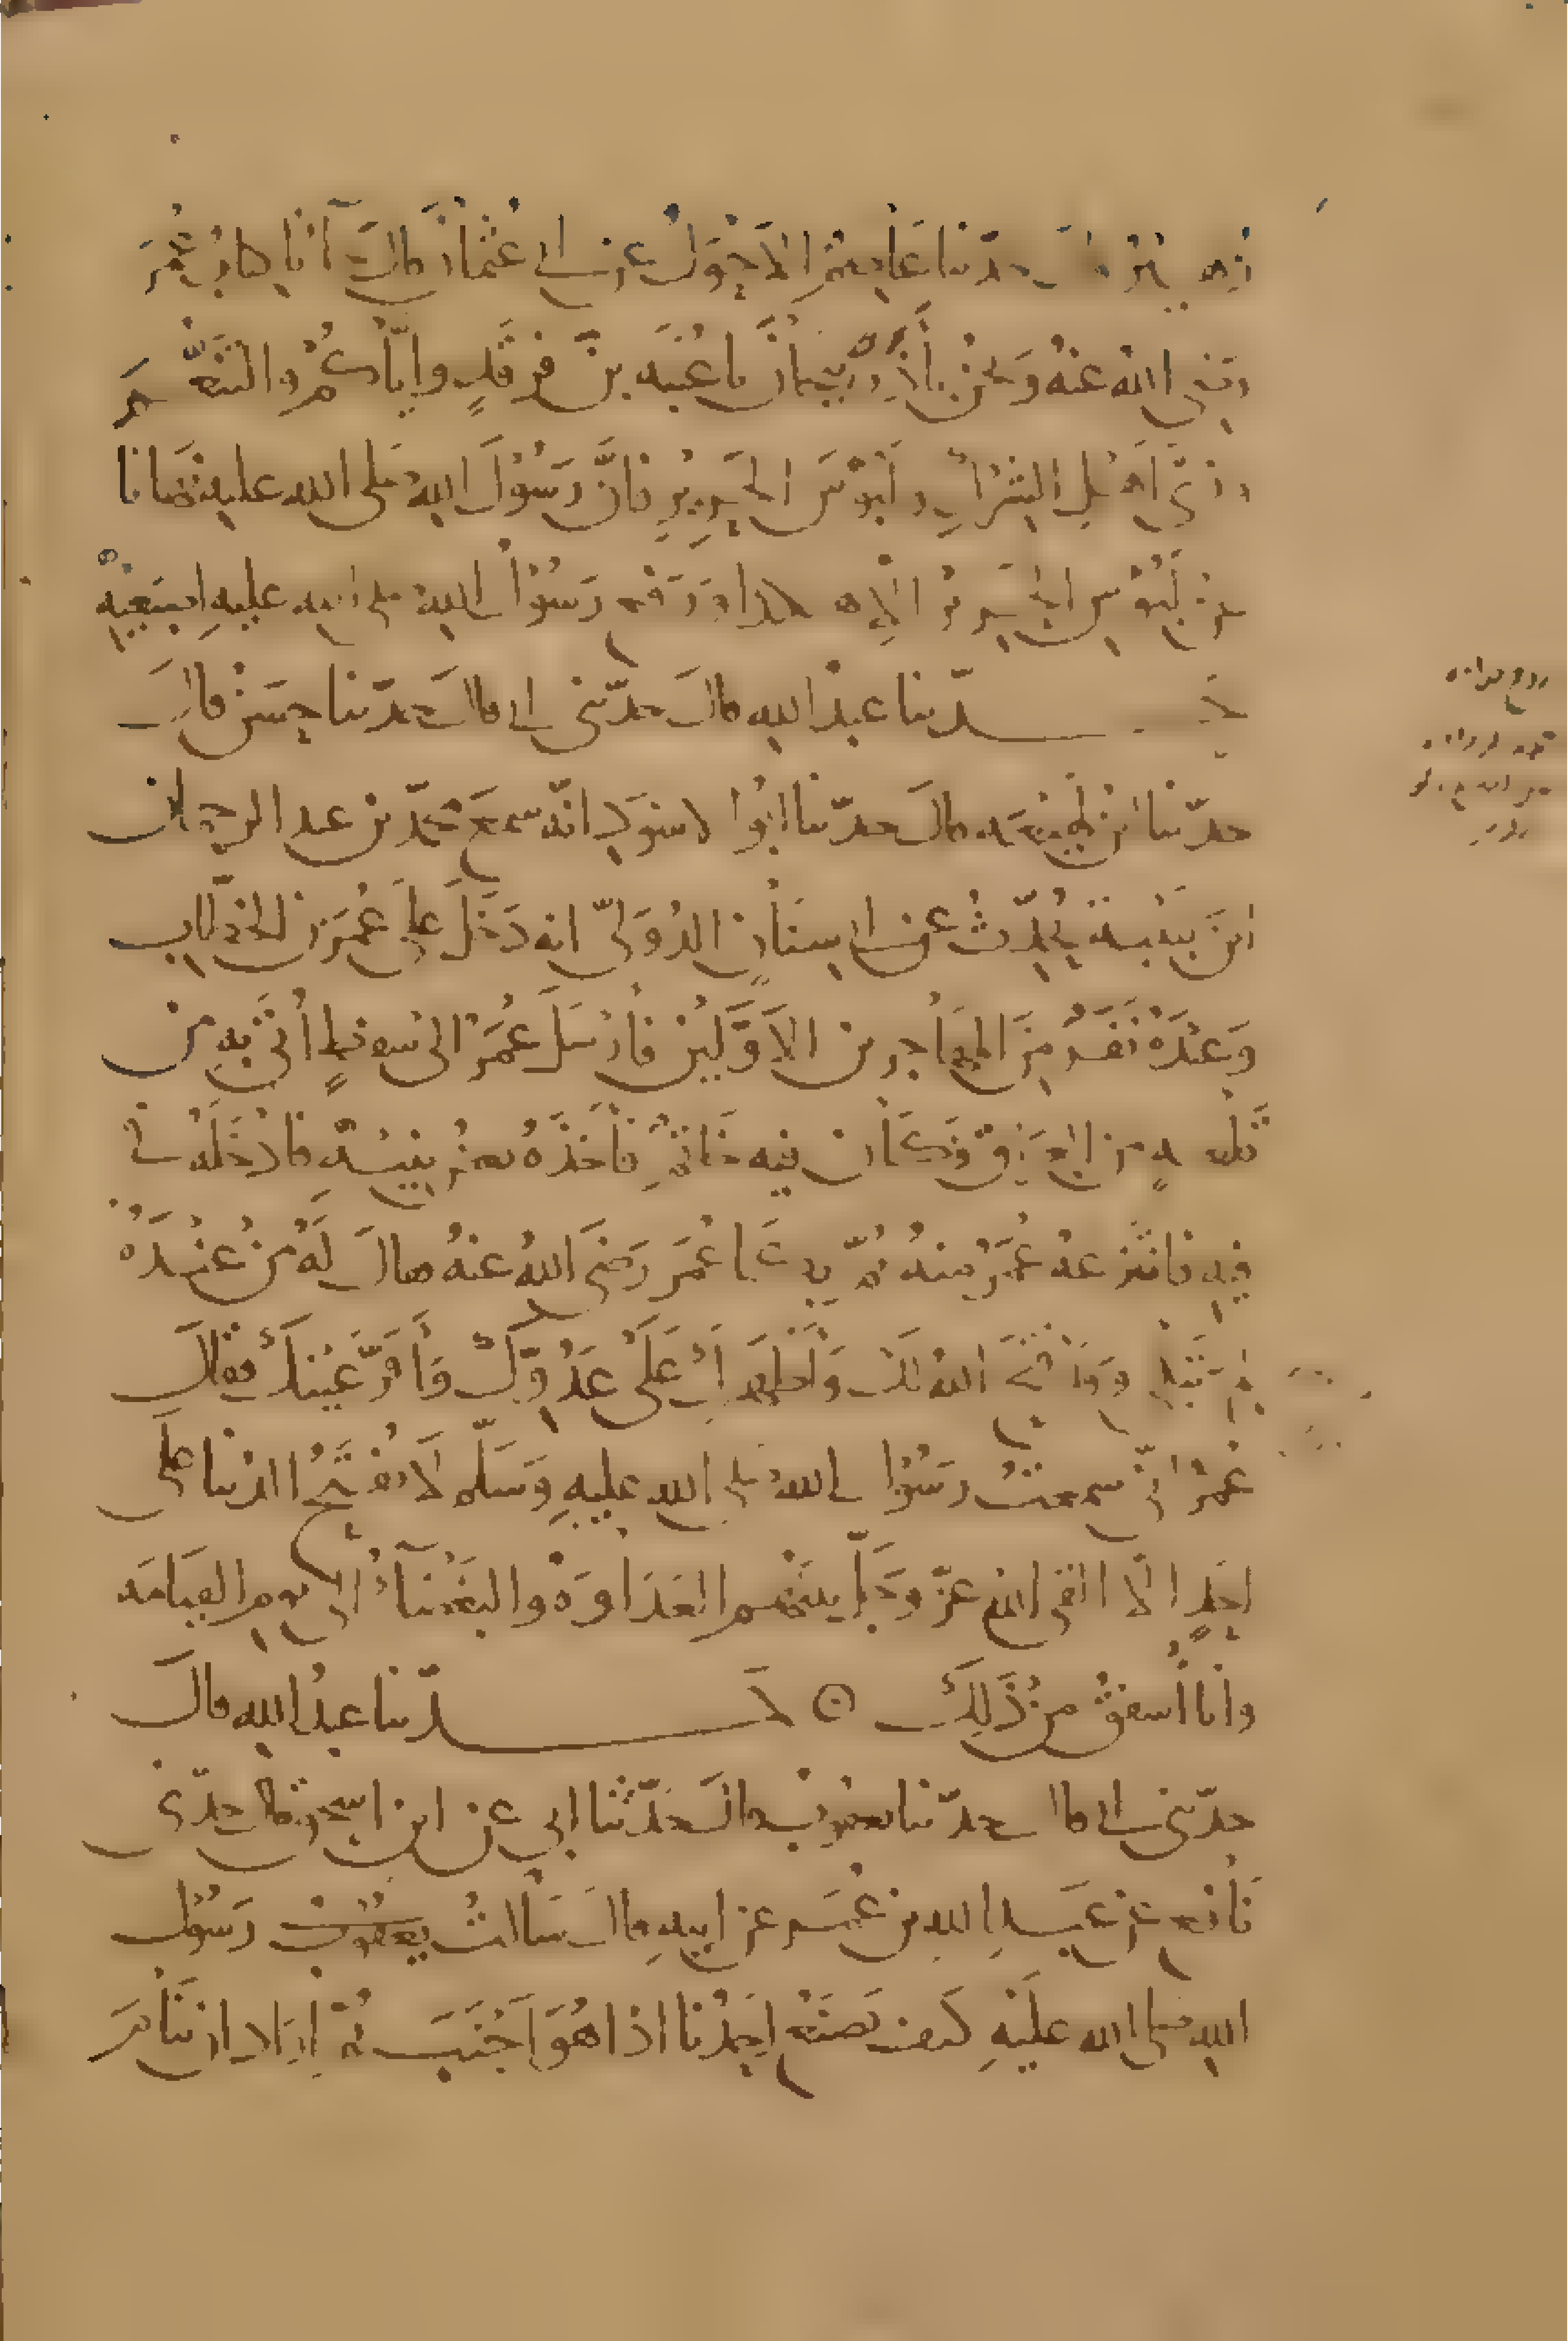 زهير قال حدّثنا عاصم الاحول عن ابي عثمان قال أتانا كتاب عمر
رضي الله عنه ونحن بأذربيجان يا عتبة بن فرقد واياكم والتنعم
وزيّ اهل الشرك ولبوس الحرير فانّ رسول الله صلى الله عليه نهانا
عن لبوس الحرير الا هكذا ورفع رسول الله صلى الله عليه اصبعيه
حدّثنا عبد الله قال حدّثني ابي قال حدّثنا حسن قال
حدّثنا ابن لهيعة قال حدّثنا ابو الاسود انّه سمع محمّد بن عبد الرحمان
ابن لبيبة يحدّث عن ابي سنان الدؤليّ انه دخل على عمر بن الخطاب
وعنده نفر من المهاجرين الاوّلين فأرسل عمر الى سفط أتي به من
قلعة من العراق فكان فيه خاتم فأخذه بعض بنيه فادخله في
فيه فانتزعه عمر منه ثمّ بكا عمر رضي الله عنه فقال له من عنده
لم تبكي وقد فتح الله لك وأظهرك على عدوّك وأقرّ عينك فقال
عمر انّي سمعت رسول الله صلى الله عليه وسلّم لا تفتح الدنيا على
احد الّا القى الله عزّ وجلّ بينهم العداوة والبغضآء الى يوم القيامه
وأنا أشفق من ذلك حدّثنا عبد الله قال
حدّثني ابي قال حدّثنا يعقوب قال حدّثنا ابي عن ابن اسحق قال حدّثني
نافع عن عبد الله بن عمر عن ابيه قال سألت يعقوب رسول
الله صلى الله عليه كيف يصنع احدنا اذا هو اجنب ثمّ اراد ان ينام